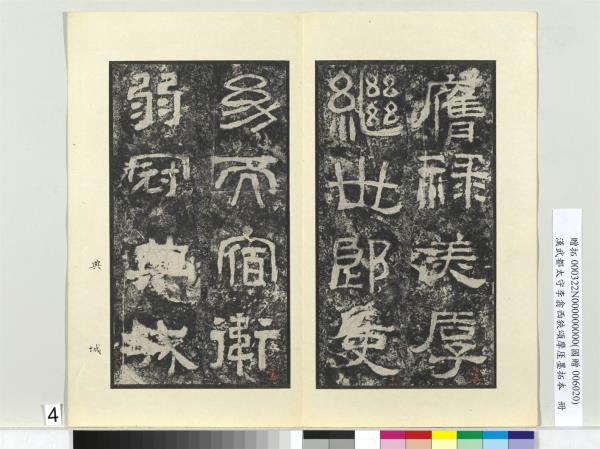 膺祿美厚
繼世郎吏
幼而宿衛
弱冠典城
典 城
贈拓 000322N000000000(國贈 006020)
漢武都太守李翕西狹頌摩厓墨拓本 冊
4